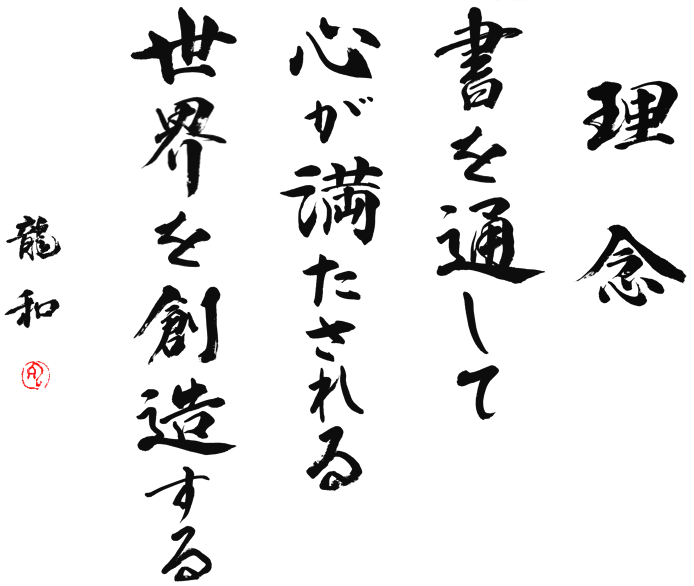 理念
書を通して
心が満たされる
世界を創造する
龍和